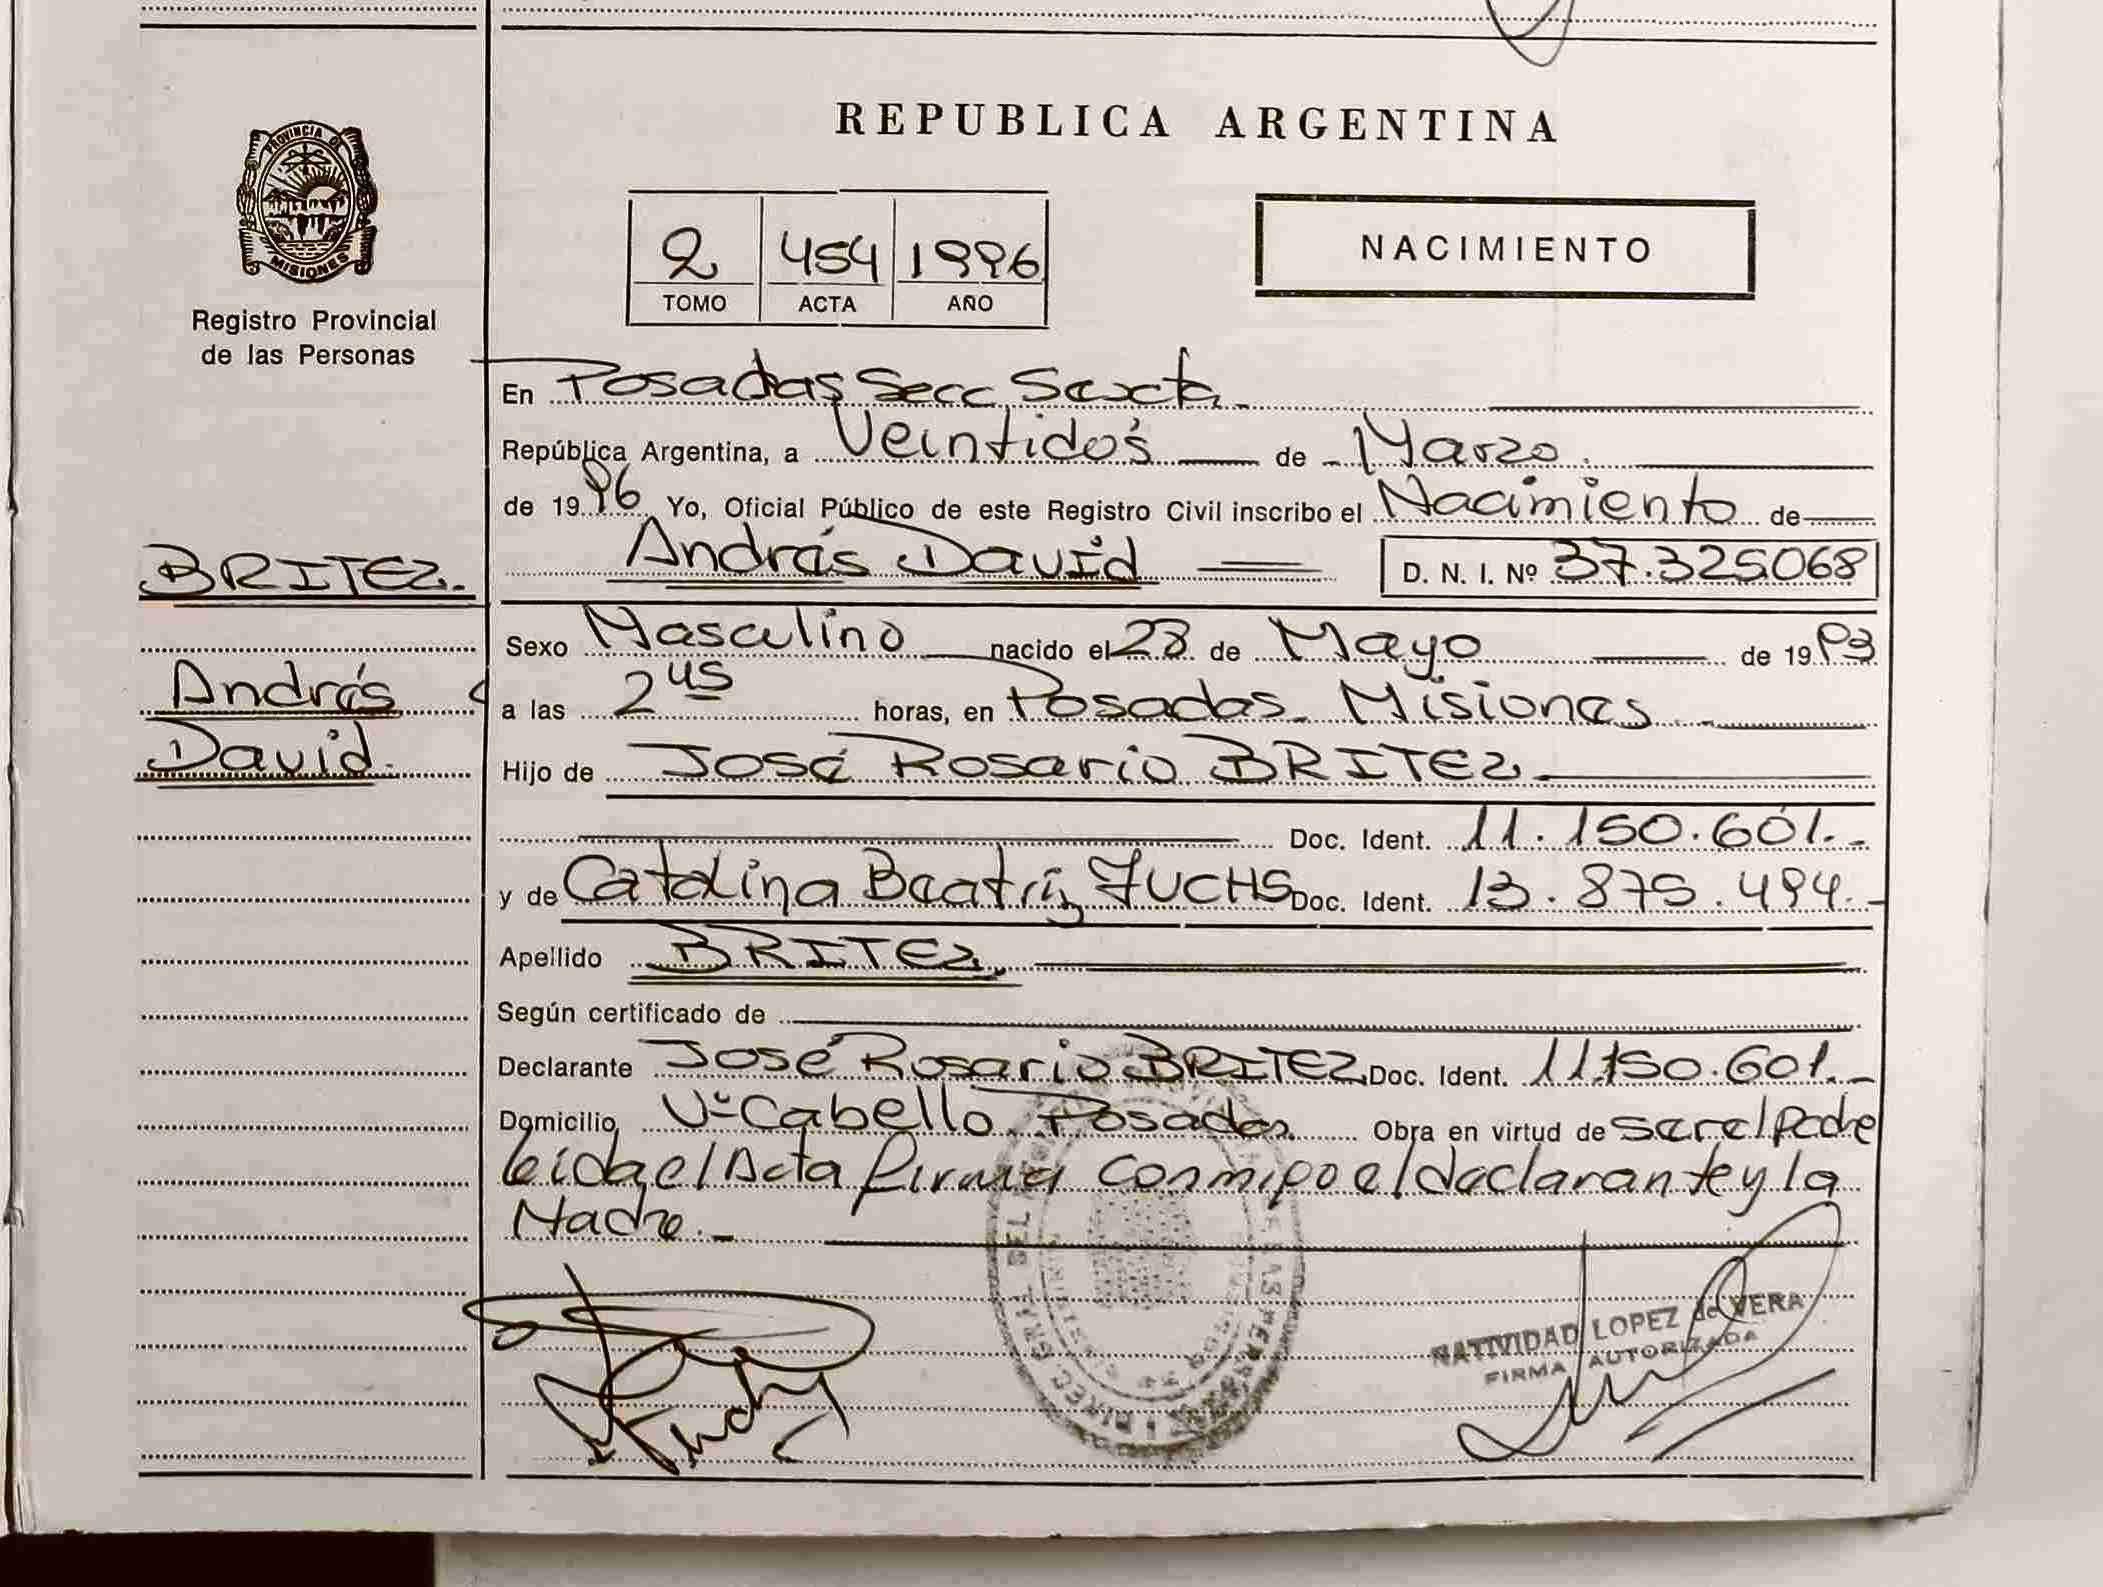 REPUBLICA ARGENTINA
PROVINCIA DE
MISIONES
Registro Provincial
de las Personas
2 454 1996
TOMO ACTA AÑO
NACIMIENTO
En Posadas Secc. Sexta
República Argentina, a Veintidós de Marzo
de 1996 Yo, Oficial Público de este Registro Civil inscribo el Nacimiento de
BRITEZ.
Andrés David D. N. I. Nº 37.325068
Sexo Masculino nacido el 28 de Mayo de 1993
Andrés
a las 2 45 horas, en Posadas Misiones
David.
Hijo de José Rosario BRITEZ
Doc. Ident. 11.150.601.-
y de Catalina Beatriz FUCHS Doc. Ident. 13.875.494.-
Apellido BRITEZ.
Según certificado de
Declarante José Rosario BRITEZ Doc. Ident. 11.150.601.-
Domicilio Vª Cabello Posadas. Obra en virtud de ser el Padre
leida el Acta firma conmigo el declarante y la
Madre.-
NATIVIDAD LOPEZ de VERA
FIRMA AUTORIZADA